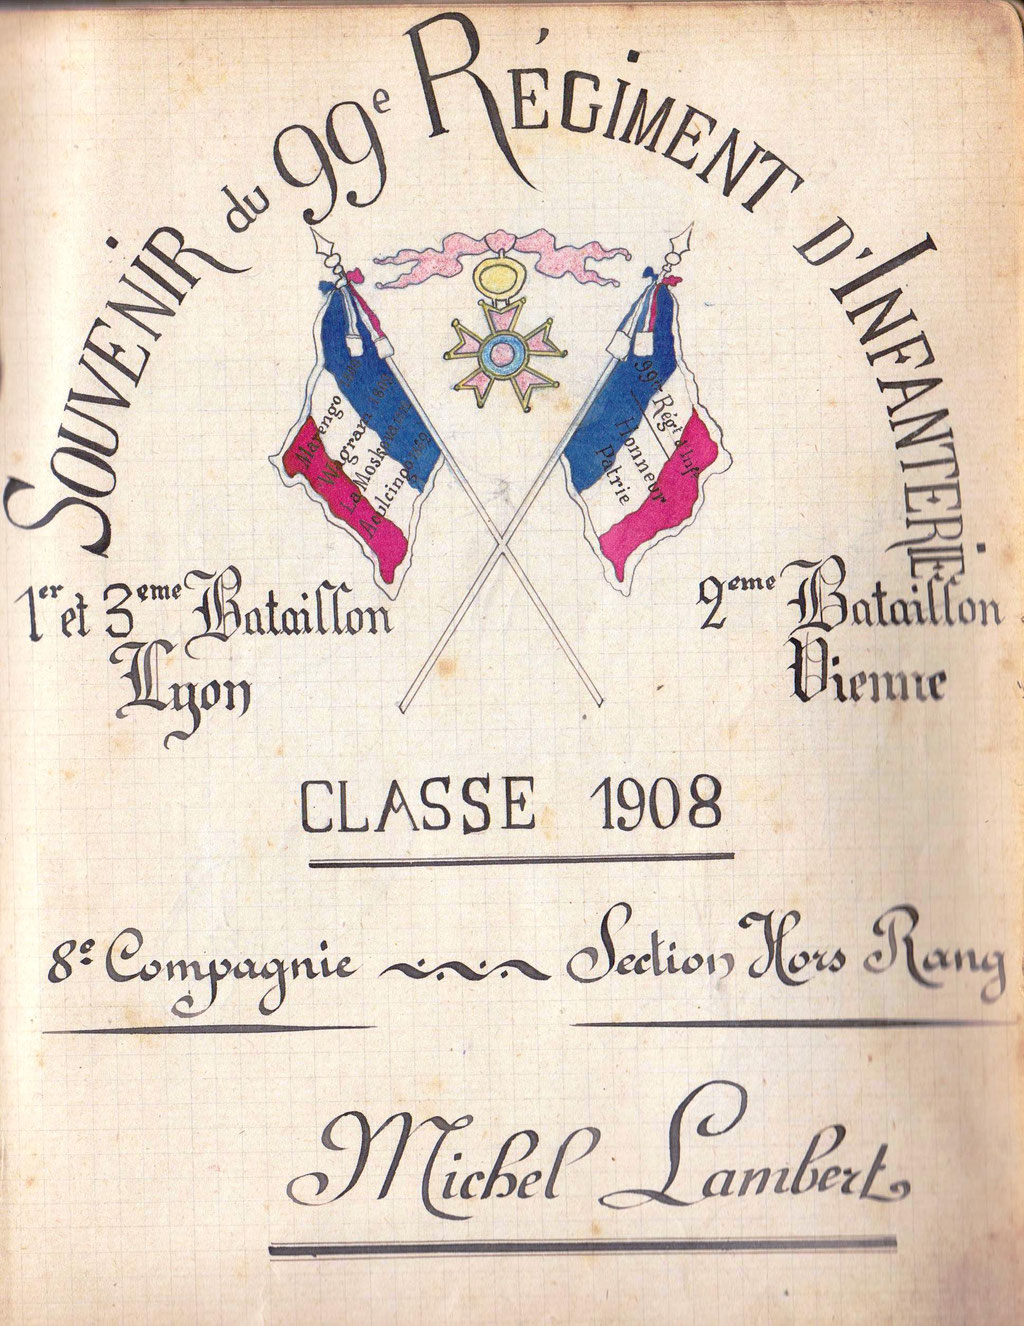 SOUVENIR du 99e RÉGIMENT D'INFANTERIE
Marengo
Wagram 1809
La Moskowa
99e Régt d'Inf.
Honneur
Patrie
1er et 3eme Bataillon
Lyon
2eme Bataillon
Vienne
CLASSE 1908
8e Compagnie
Section Hors Rang
Michel Lambert